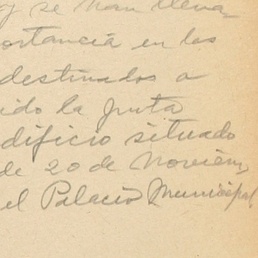 y se han lleva-
ortancia en los
destinados a
ido la Junta
dificio situado
de 20 de Noviem
el Palacio Municipal,